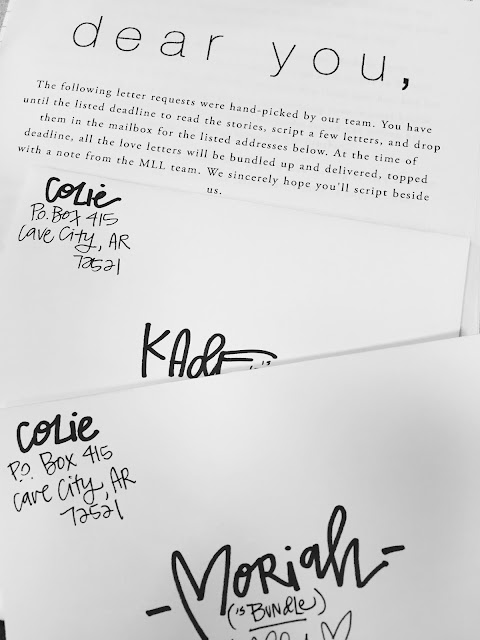 dear you,
The following letter requests were hand-picked by our team. You have
until the listed deadline to read the stories, script a few letters, and drop
them in the mailbox for the listed addresses below. At the time of
deadline, all the love letters will be bundled up and delivered, topped
with a note from the MLL team. We sincerely hope you'll script beside
us.
Colie
P.O. Box 415
Cave City, AR
72521
KADE
Colie
P.O. Box 415
Cave City, AR
72521
-MORiah-
('s BUNDLE)